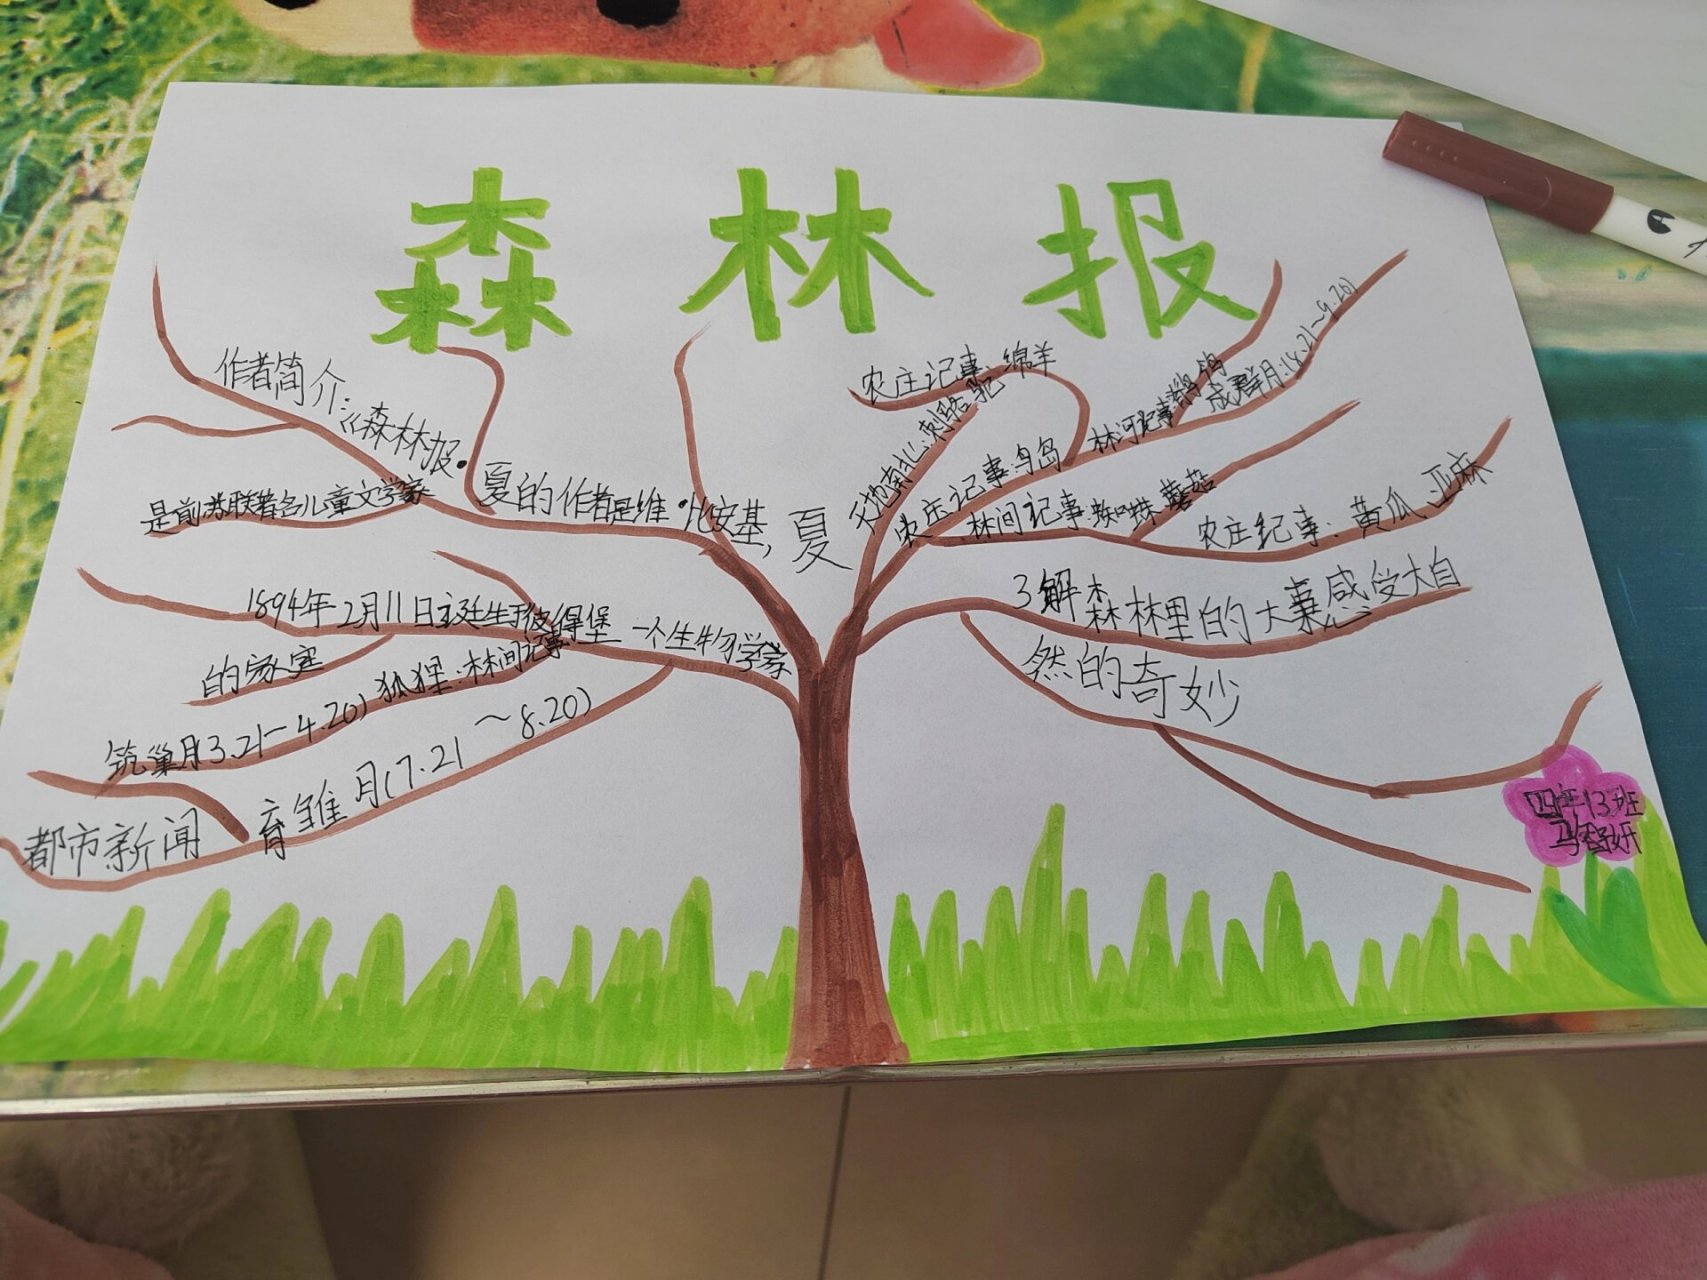 森林报
作者简介：《森林报·夏的作者是维·比安基，
是前苏联著名儿童文学家
1894年2月11日诞生于彼得堡一个生物学家
的家室
筑巢月3.21-4.20)狐狸：林间记事
育雏月(7.21～8.20)
都市新闻
夏
天地南北：刺骆驼
农庄记事：绵羊
农庄记事：鸟岛
林间记事：蜘蛛 蘑菇
成群月：(8.21～9.20)
农庄纪事：黄瓜、亚麻
3解森林里的大事感受大自
然的奇妙
四年13班